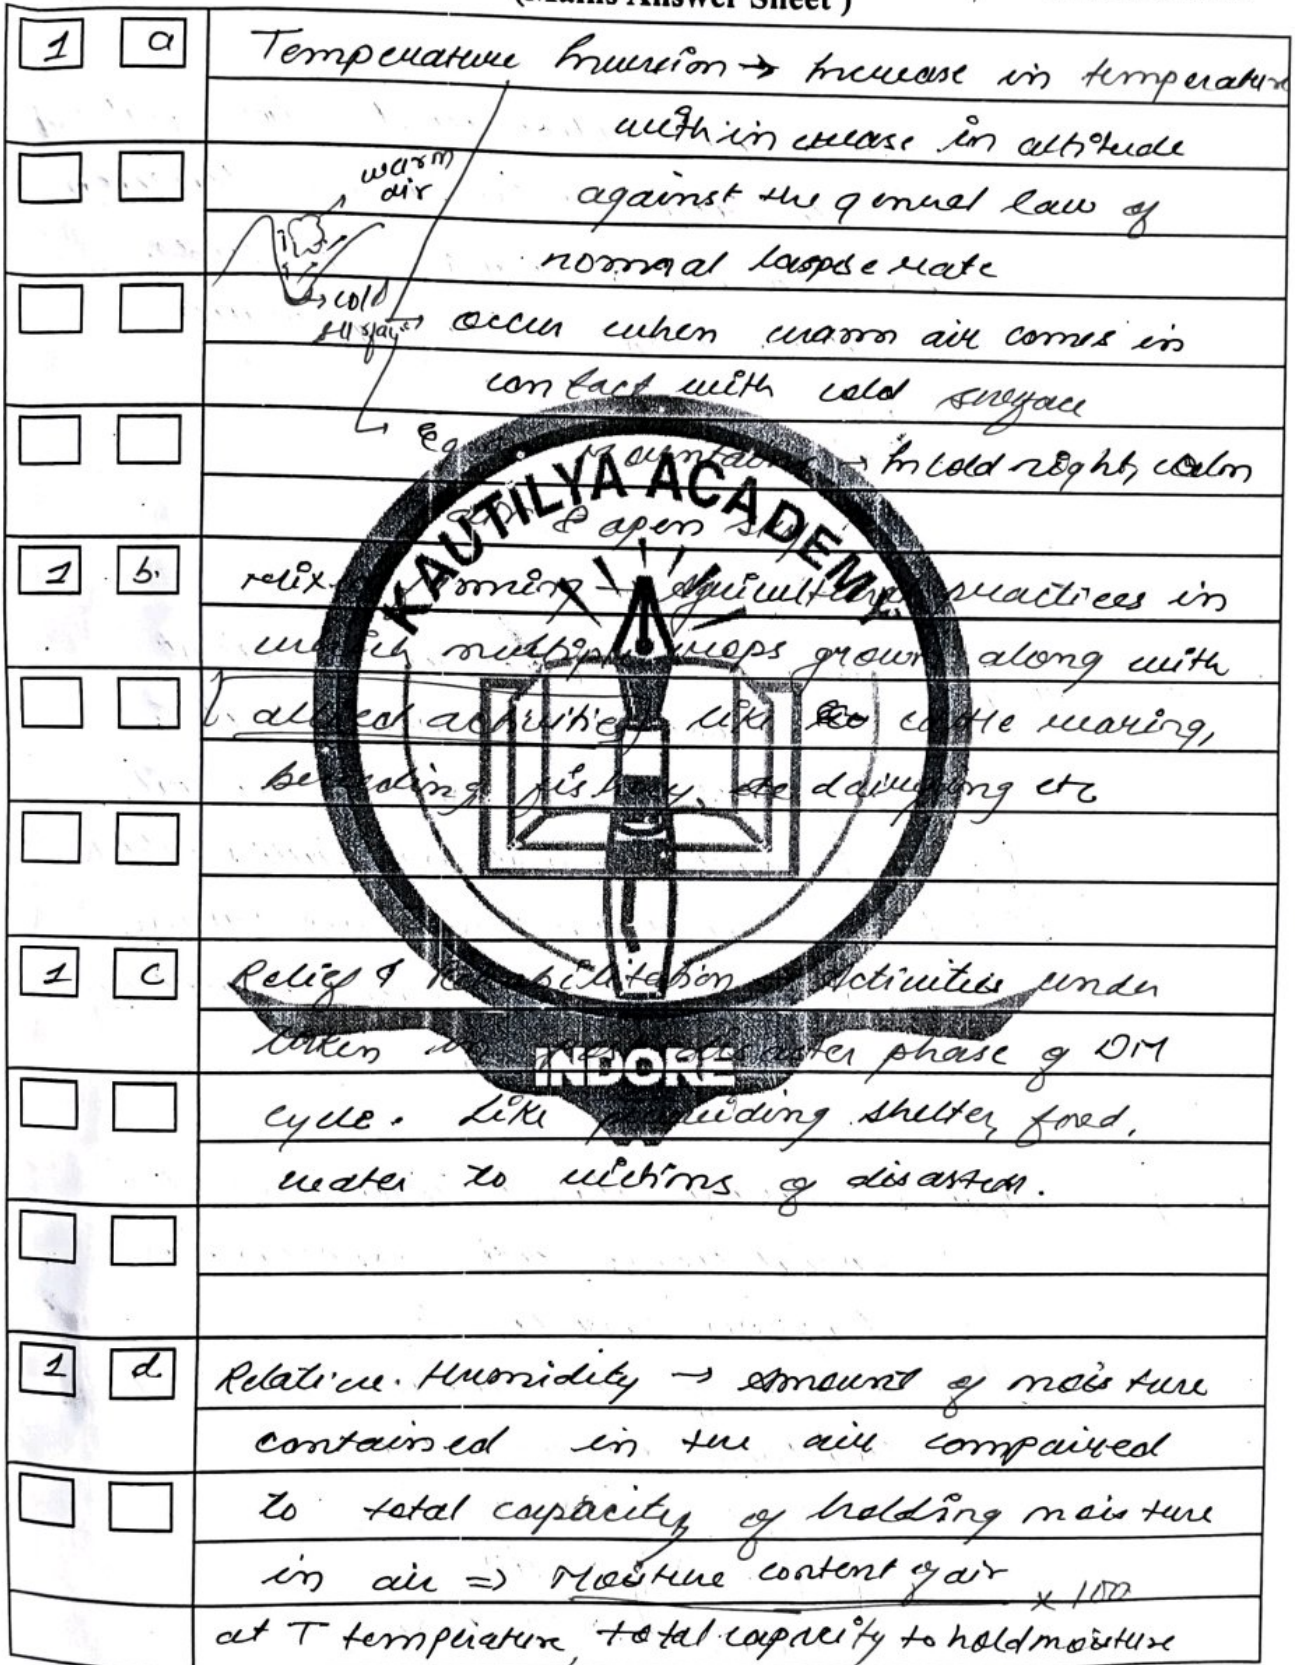 (Mains Answer Sheet )
1 a Temperature Inversion → Increase in temperature
with increase in altitude
against the general law of
normal lapse rate
warm
air
→ cold
surface
→ occur when warm air comes in
contact with cold surface
Eg. Mountains → In cold night, calm
& open
KAUTILYA ACADEMY
1 b. Mix farming Agricultural practices in
which multiple crops grown along with
allied activities like cattle rearing,
fishery, dairying etc
1 c Relief & Rehabilitation Activities under
taken in disaster phase of DM
INDORE
cycle. Like providing shelter, food,
water to victims of disaster.
1 d Relative Humidity → Amount of moisture
contained in the air compaired
to total capacity of holding moisture
in air => Moisture content of air × 100
at T temperature, total capacity to hold moisture